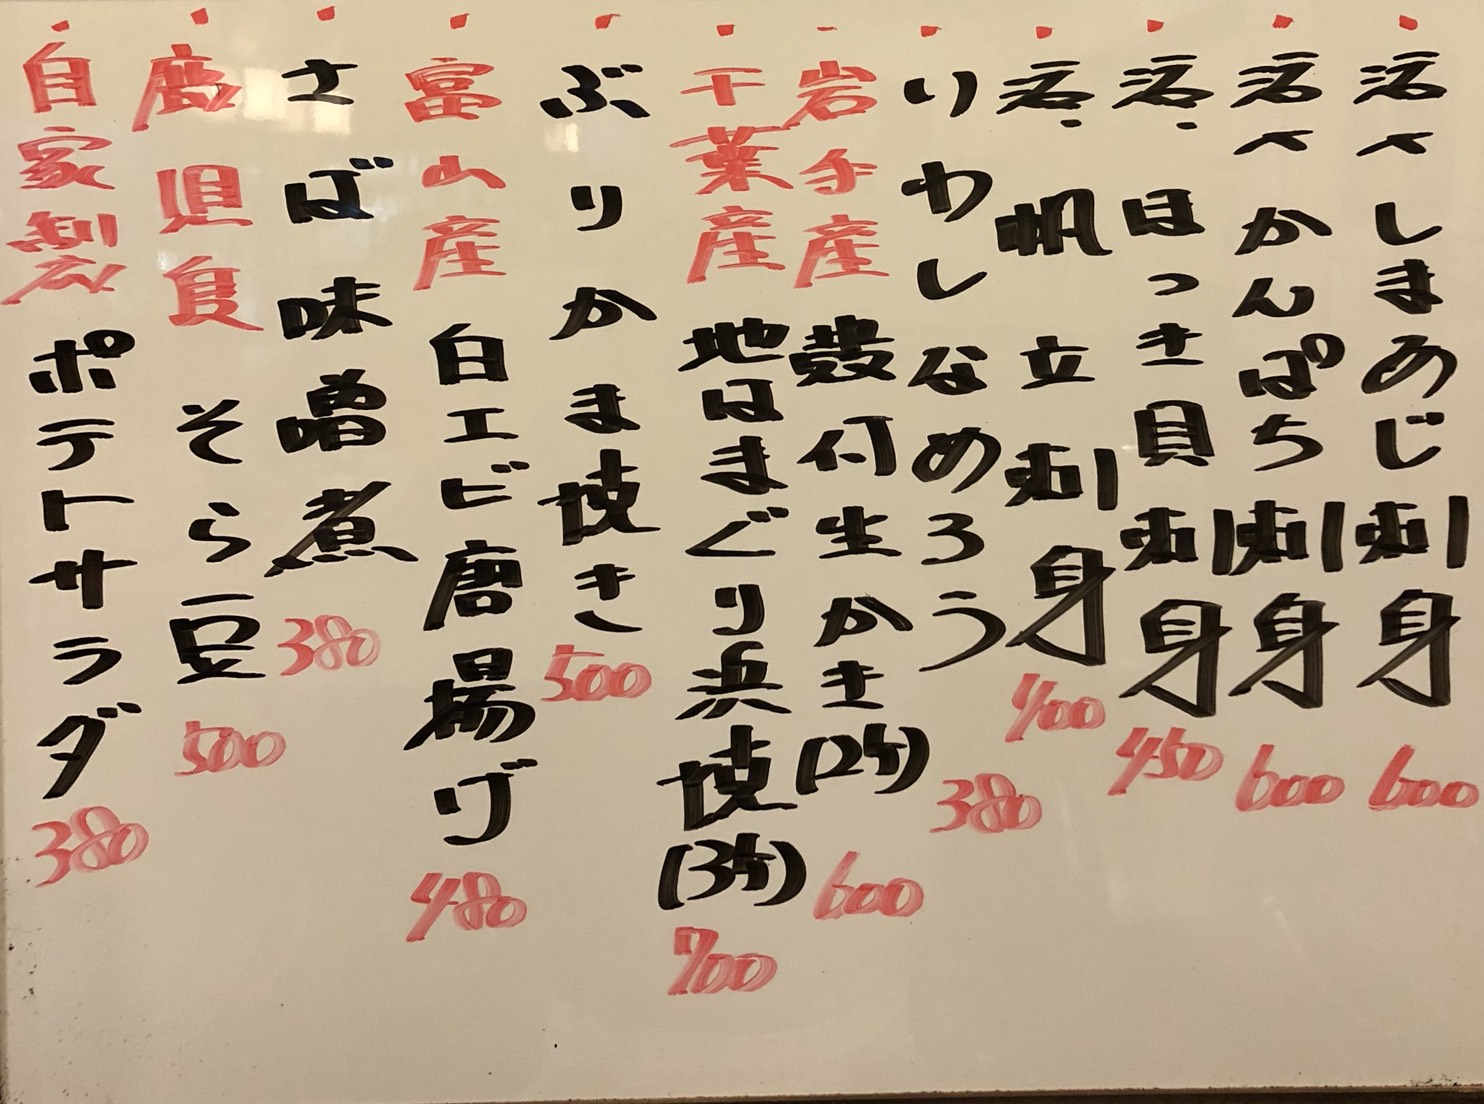 ・活〆しまあじ刺身 600
・活〆かんぱち刺身 600
・活・ほっき貝刺身 450
・活・帆立刺身 400
・いわしなめろう 380
・岩手産殻付生かき(2ケ) 600
・千葉産地はまぐり浜焼(3ケ) 700
・ぶりかま焼き 500
・富山産白エビ唐揚げ 480
・さば味噌煮 380
・鹿児島そら豆 500
・自家製ポテトサラダ 380